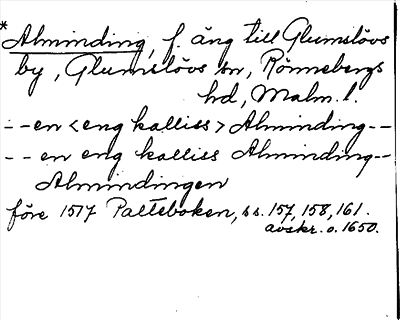 * Alminding, f. äng till Glumslövs
by, Glumslövs sn, Rönnebergs
hd, Malm. l.
--en <eng kalliss> Alminding--
--en eng kalliss Alminding--
Almindingen
före 1517 Palteboken, ss. 157, 158, 161.
avskr. o. 1650.